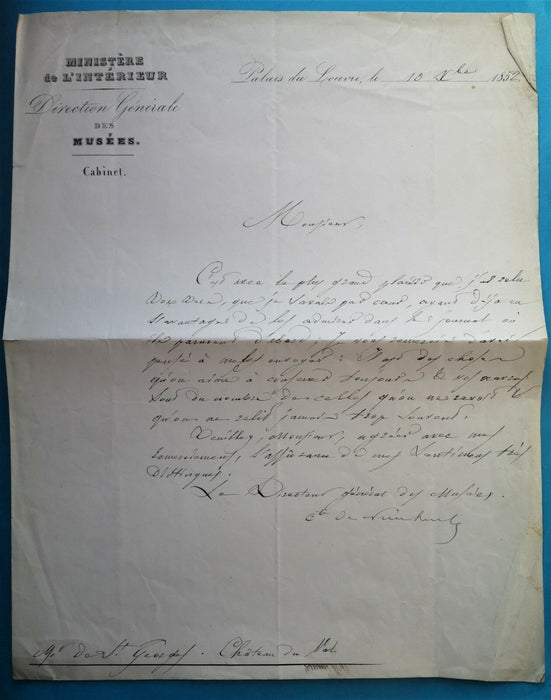 MINISTÈRE
de L'INTÉRIEUR
Direction Générale
DES
MUSÉES.
Cabinet.
Palais du Louvre, le 10 Xbre 1852
Monsieur,
C'est avec le plus grand plaisir que j'ai relu
vos vers, que je savais par cœur, ayant déjà eu
l'avantage de les admirer dans le journal où
ils parurent d'abord; je vous remercie d'avoir
pensé à me les envoyer: Il est des choses
qu'on aime à conserver toujours & vos œuvres
sont du nombre de celles qu'on ne
qu'on ne relit jamais trop souvent.
Veuillez, Monsieur, agréer avec mes
remerciements, l'assurance de mes sentiments très
distingués.
Le Directeur général des Musées.
Cte de Nieuwerkerke
Mr de St Georges. Château du